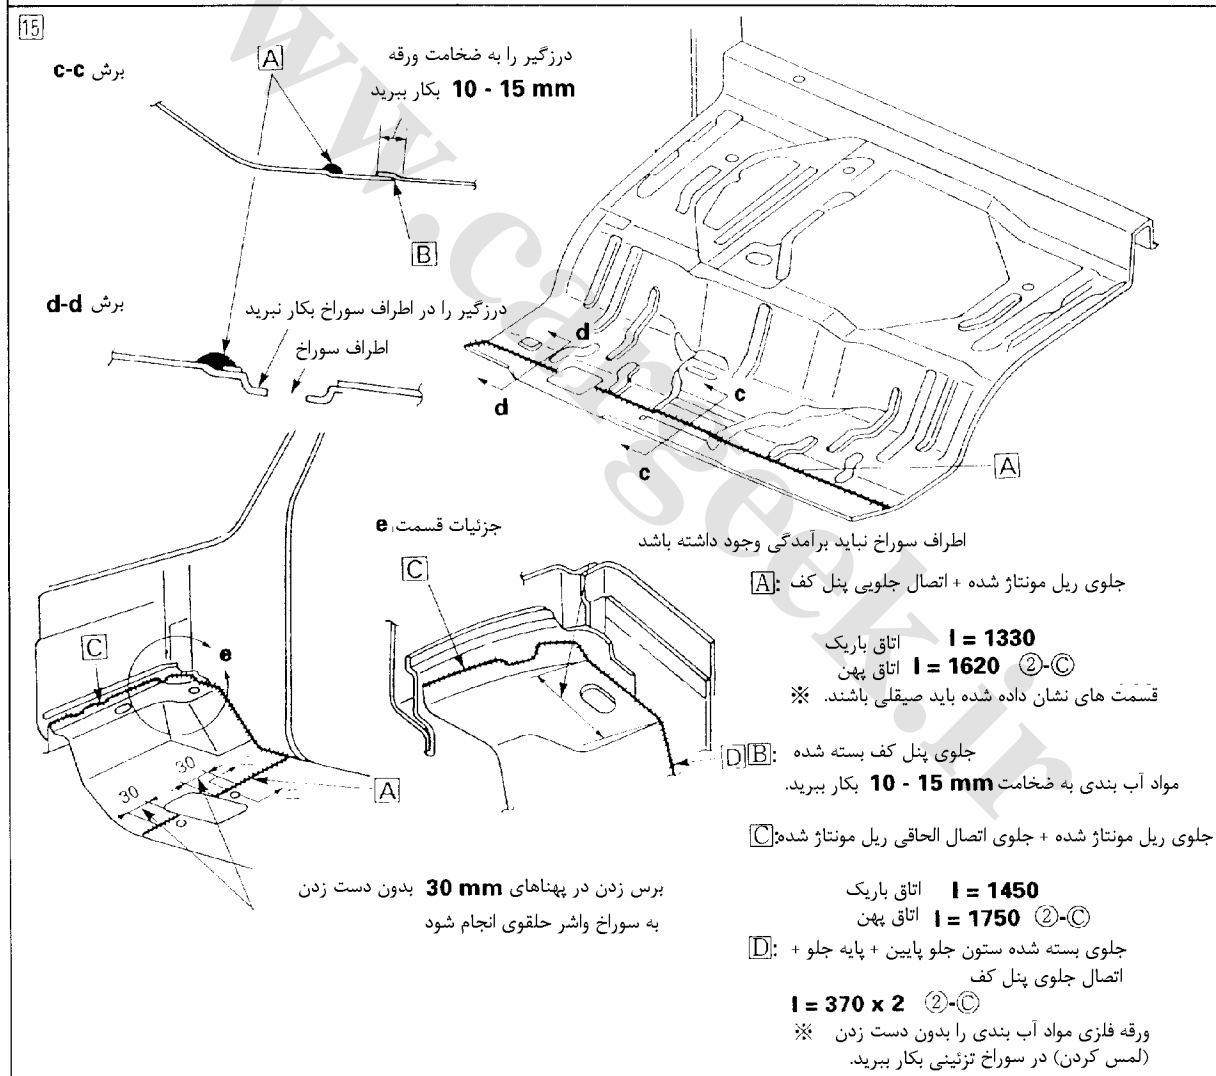 15
برش c-c
A
درزگیر را به ضخامت ورقه
10 - 15 mm بکار ببرید
B
برش d-d
درزگیر را در اطراف سوراخ بکار نبرید
اطراف سوراخ
d
d
c
c
A
اطراف سوراخ نباید برآمدگی وجود داشته باشد
جزئیات قسمت e
C
C
e
30
30
A
D
برس زدن در پهناهای 30 mm بدون دست زدن
به سوراخ واشر حلقوی انجام شود
A: جلوی ریل مونتاژ شده + اتصال جلویی پنل کف
اتاق باریک l = 1330
اتاق پهن l = 1620 ②-Ⓒ
※ قسمت های نشان داده شده باید صیقلی باشند.
B: جلوی پنل کف بسته شده
مواد آب بندی به ضخامت 10 - 15 mm بکار ببرید.
C: جلوی ریل مونتاژ شده + جلوی اتصال الحاقی ریل مونتاژ شده
اتاق باریک l = 1450
اتاق پهن l = 1750 ②-Ⓒ
D: جلوی بسته شده ستون جلو پایین + پایه جلو +
اتصال جلوی پنل کف
l = 370 x 2 ②-Ⓒ
※ ورقه فلزی مواد آب بندی را بدون دست زدن
(لمس کردن) در سوراخ تزئینی بکار ببرید.
www.cargeek.ir